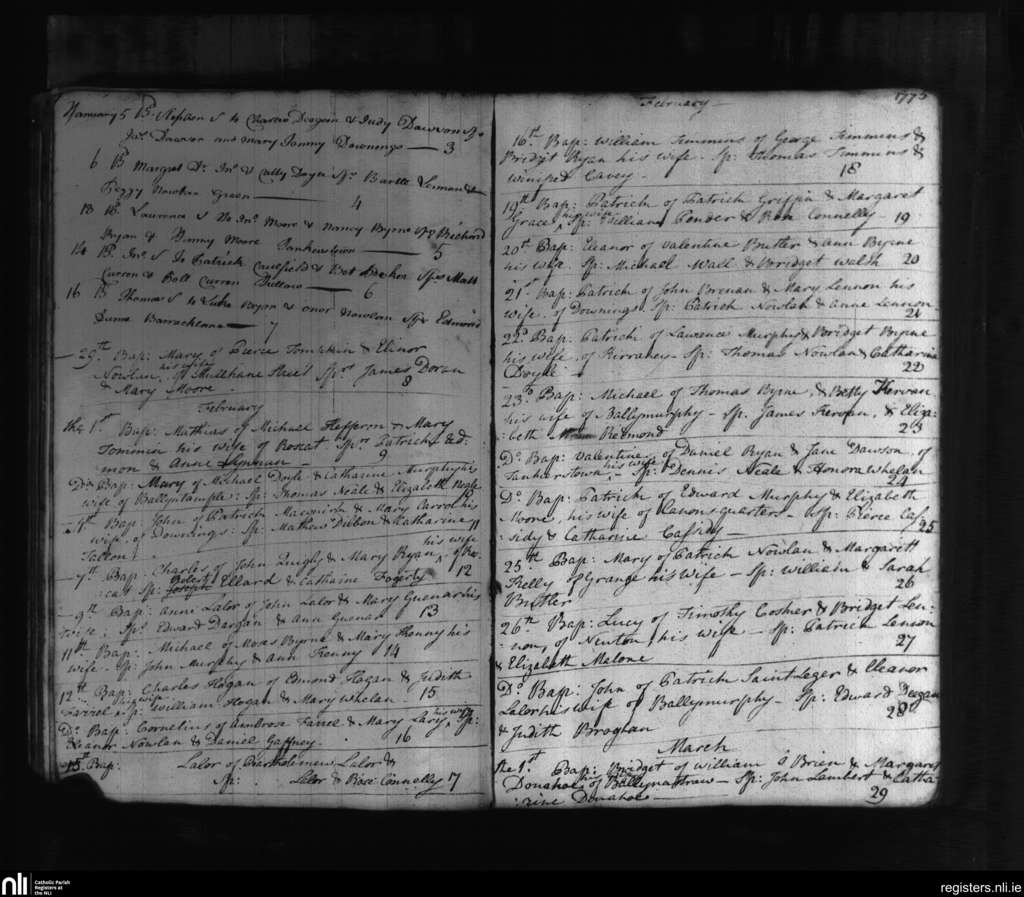 January 5 Bp. S to Charles & Judy Dawson Sp
Jas. Dawson and Mary Downings — 3
6 Bp Margret Dr. Jno. & Catty Doyle Sps. Bartle Lennan &
Peggy Nowlan Green — 4
13 Bp. Laurence S to Jno. Moore & Nancy Byrne Sps Richard
Bryan & Nanny Moore Tankerstown — 5
14 Bp. Jno. S to Patrick Caulfield & Sps. Matt
Curren & Curren — 6
16 Bp Thomas S to Bryan & Onor Nowlan Sps Edmond
— 7
— 29th Bap: Mary of Pierce Tompkin & Elinor
Nowlan, his wife of Mullhane Sprs James Doran
& Mary Moore 8
February
the 1st Bap: Mathias of Michael Hefferon & Mary
his wife of Sprs Patrick
mon & Anne — 9
Do Bap: Mary of Michael Doyle & Catharine Murphy his
wife of Ballyntample: Sp: Thomas Neale & Elizabeth Neale 10
4th Bap: John of Patrick & Mary Carrol his
wife, of Downings. Sp: Mathew & Katharine 11
his wife
— 7th Bap: Charles of John Quigly & Mary Ryan of Ros-
cat Sp: Robert Ellard & Catharine Fogerty 12
— 9th Bap: Anne Lalor of John Lalor & Mary his
wife; Sp: Edward Dargan & Ann 13
11th Bap: Michael of Moses Byrne & Mary Henny his
wife Sp: John Murphy & Ann Kenny 14
12th Bap: Charles Hogan of Edmond Hogan & Judith
Farrel his wife Sp: William Hogan & Mary Whelan 15
Do Bap: Cornelius of Ambrose Farrel & Mary Lary his wife Sp:
Eleanor Nowlan & Daniel Gaffney. 16
15th Bap: Lalor of Bartholemew Lalor &
Sp: Lalor & Rose Connelly 17
February 1775
16th Bap: William Timmins of George Timmins &
Bridgit Ryan his wife Sp: Thomas Timmins &
Winifred Cavey — 18
19th Bap: Patrick of Patrick Griffin & Margaret
Grace his wife Sp: William Pender & Rose Connelly 19
20th Bap: Eleanor of Valentine Butler & Ann Byrne
his wife Sp: Michael Wall & Bridget Walsh 20
21st Bap: Patrick of John Brenan & Mary Lennon his
wife of Downings Sp: Patrick Nowlan & Anne Lennon
21
22d Bap: Patrick of Laurence Murphy & Bridget Byrne
his wife, of Kirrahey — Sp: Thomas Nowlan & Catharine
Doyle 22
23d Bap: Michael of Thomas Byrne, & Betty Kervan
his wife of Ballymurphy — Sp: James Kervan, & Eliza-
beth Redmond 23
Do Bap: Valentine of Daniel Ryan & Jane Dawson, of
Tankerstown his wife — Sp: Dennis Neale & Honora Whelan
24
Do Bap: Patrick of Edward Murphy & Elizabeth
Moore, his wife of Canonsquarters — Sp: Pierce Cas-
sidy & Catharine Cassidy — 25
25th Bap: Mary of Patrick Nowlan & Margarett
Kelly of Grange his Wife — Sp: William & Sarah
Butler 26
26th Bap: Lucy of Timothy Cosher & Bridget Len-
non, of Newton, his wife — Sp: Patrick Lennon
& Elizabeth Malone 27
Do Bap: John of Patrick Saint Leger & Eleanor
Lalor his wife of Ballymurphy — Sp: Edward Deegan
& Judith Broghan 28
March
the 1st Bap: Bridget of William O Brien & Margaret
Donahoe his wife of Ballynattraw — Sp: John Lambert & Catha-
rine Donahoe — 29
nli Catholic Parish
Registers at
the NLI
registers.nli.ie